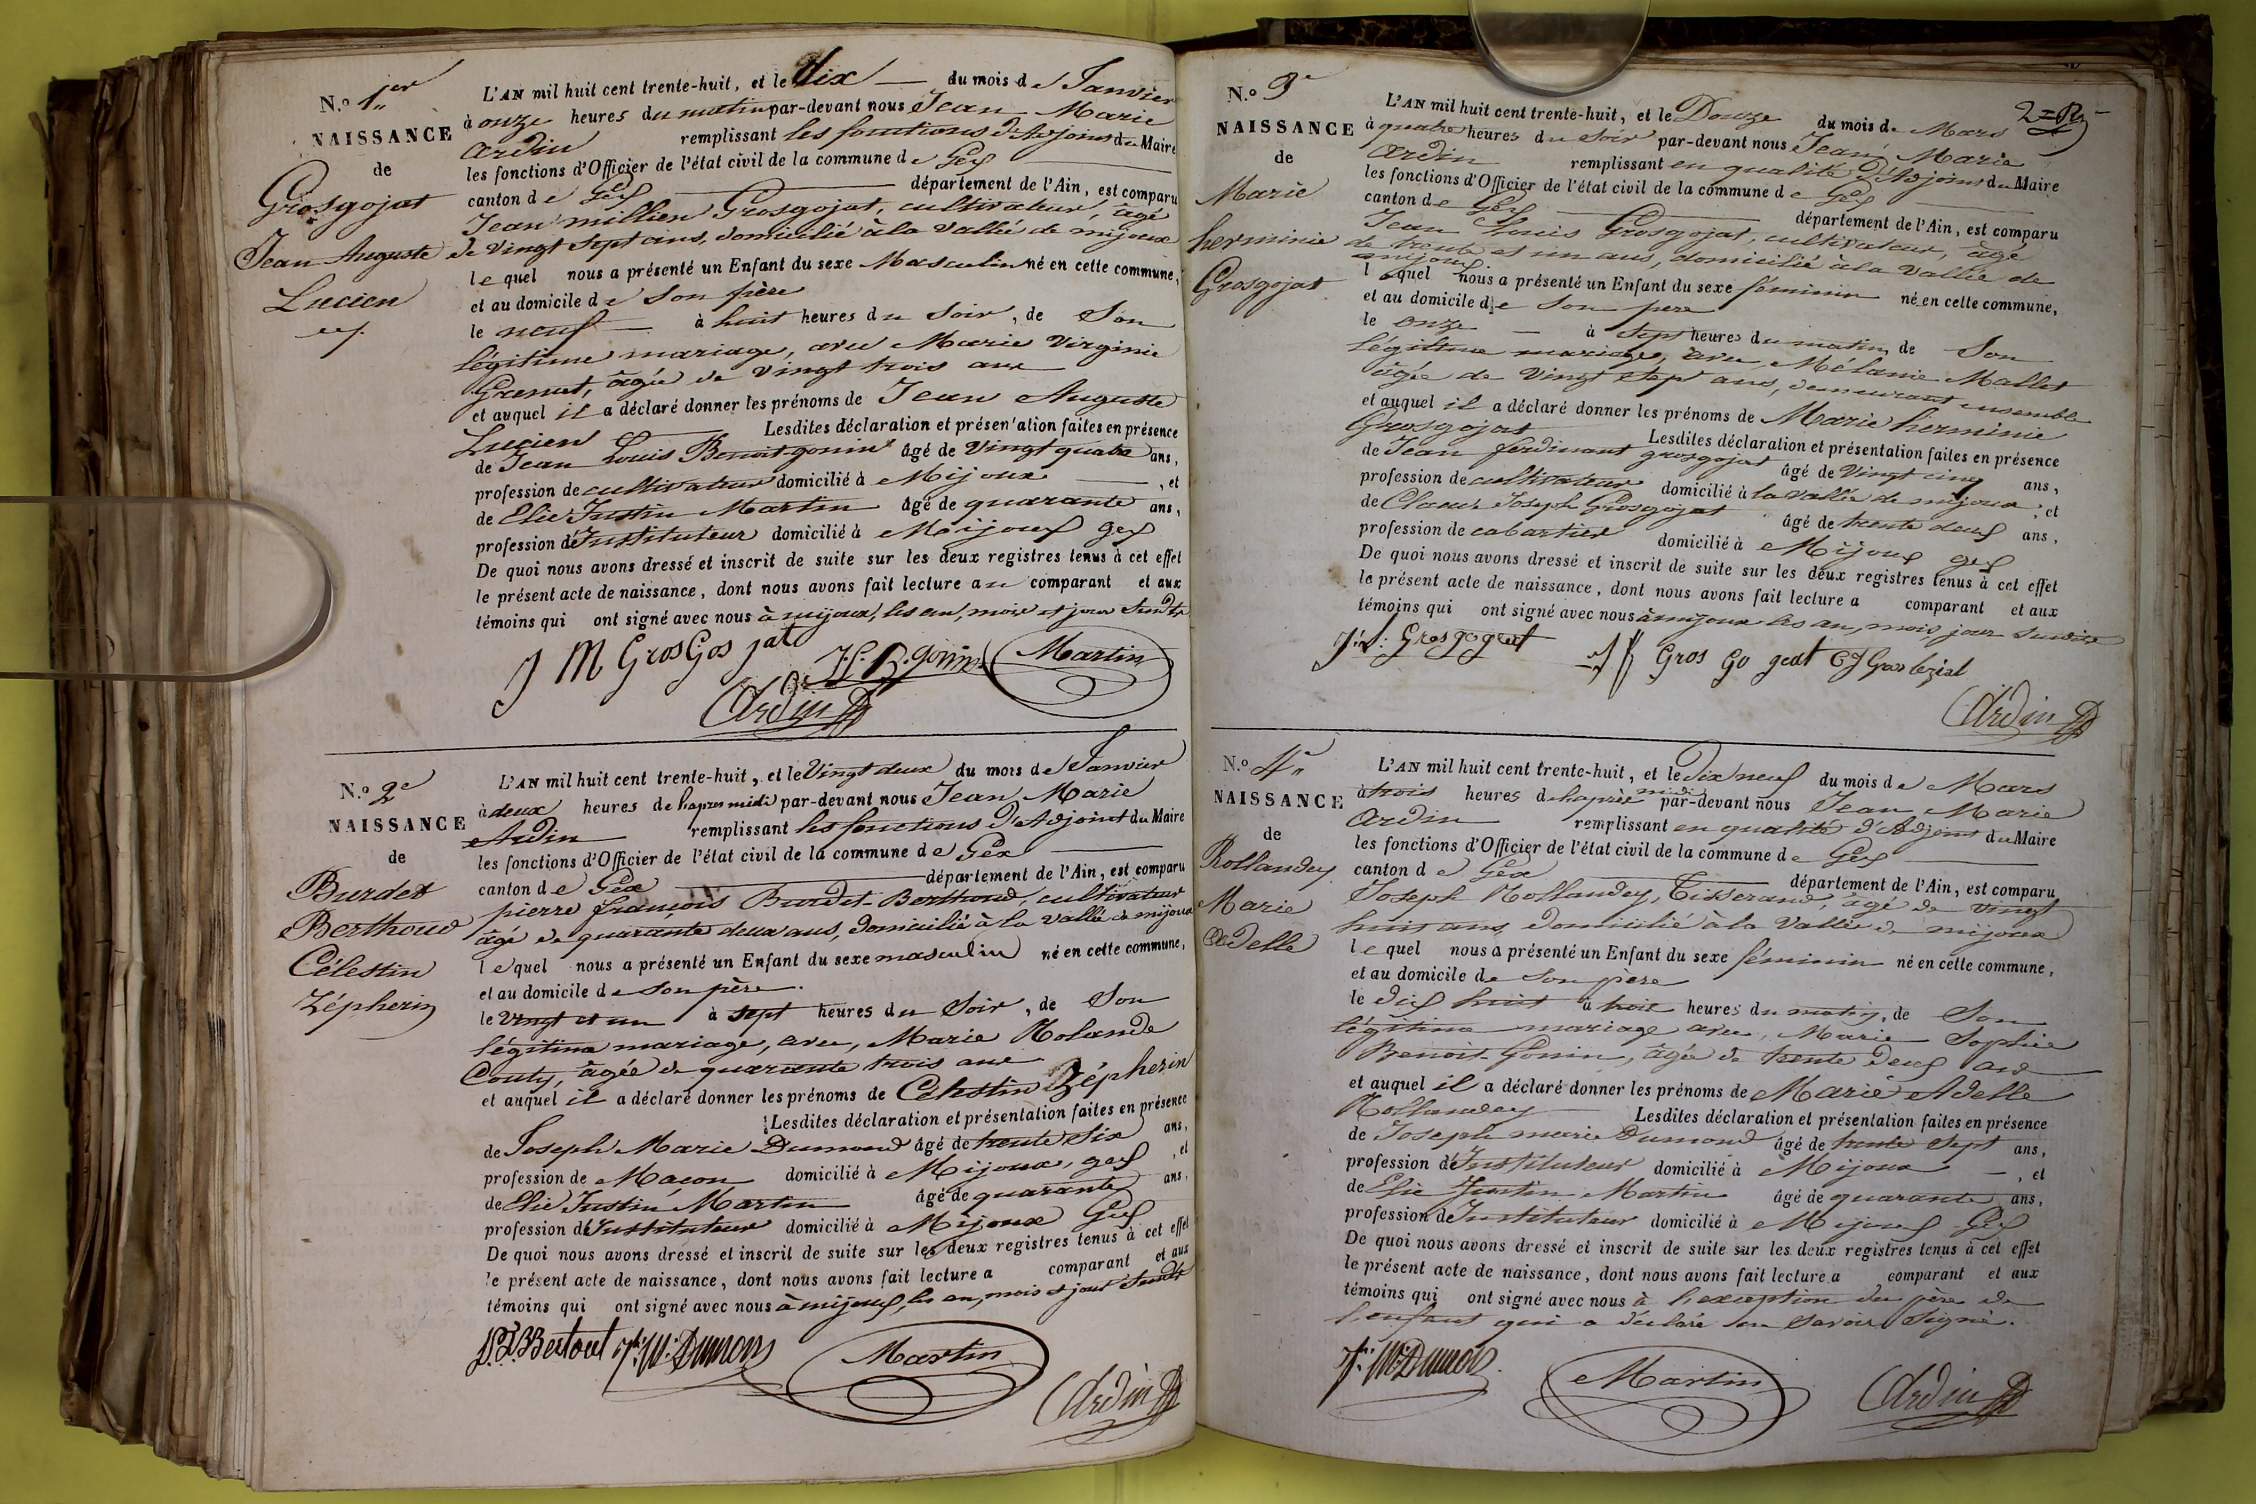 N.º 1.er
NAISSANCE
de
Grosgojat
Jean Auguste
Lucien
L'AN mil huit cent trente-huit, et le dix du mois de Janvier
à onze heures du matin par-devant nous Jean Marie
Ardin remplissant les fonctions d'Adjoint du Maire
les fonctions d'Officier de l'état civil de la commune de Gex
canton de Gex département de l'Ain, est comparu
Jean millien Grosgojat, cultivateur, âgé
de vingt sept ans, domicilié à la vallé de mijoux
lequel nous a présenté un Enfant du sexe Masculin né en cette commune,
et au domicile de son père
le neuf à huit heures du Soir, de Son
légitime mariage, avec Marie Virginie
Grenet, âgée de vingt trois ans
et auquel il a déclaré donner les prénoms de Jean Auguste
Lucien Lesdites déclaration et présen'ation faites en présence
de Jean Louis Benoit gonin âgé de vingt quatre ans,
profession de cultivateur domicilié à Mijoux, et
de Elie Justin Martin âgé de quarante ans,
profession d'Instituteur domicilié à Mijoux gex
De quoi nous avons dressé et inscrit de suite sur les deux registres tenus à cet effet
le présent acte de naissance, dont nous avons fait lecture au comparant et aux
témoins qui ont signé avec nous à mijoux, les an, mois et jour susdits
J M GrosGosjat J.L.B. gonin Martin
Ardin
N.º 2e
NAISSANCE
de
Burdet
Berthoud
Célestin
Zépherin
L'AN mil huit cent trente-huit, et le Vingt deux du mois de Janvier
à deux heures de l'apres midi par-devant nous Jean Marie
Ardin remplissant les fonctions d'Adjoint du Maire
les fonctions d'Officier de l'état civil de la commune de Gex
canton de Gex département de l'Ain, est comparu
pierre françois Burdet-Berthoud, cultivateur
âgé de quarante deux ans, domicilié à la vallé de mijoux
lequel nous a présenté un Enfant du sexe masculin né en cette commune,
et au domicile de son père.
le vingt et un à sept heures du Soir, de Son
légitime mariage, avec, Marie Rolande
Couty, âgée de quarante trois ans
et auquel il a déclaré donner les prénoms de Célestin Zépherin
Lesdites déclaration et présentation faites en présence
de Joseph Marie Dumond âgé de trente six ans,
profession de Maçon domicilié à Mijoux, gex, et
de Elie Justin Martin âgé de quarante ans,
profession d'Instituteur domicilié à Mijoux Gex
De quoi nous avons dressé et inscrit de suite sur les deux registres tenus à cet effet
le présent acte de naissance, dont nous avons fait lecture a comparant et aux
témoins qui ont signé avec nous à mijoux, les an, mois et jour susdits
P.F.BBertout Jh. M. Dumons Martin
Ardin
2=
N.º 3e
NAISSANCE
de
Marie
herminie
Grosgojat
L'AN mil huit cent trente-huit, et le Douze du mois de Mars
à quatre heures du soir par-devant nous Jean Marie
Ardin remplissant en qualité d'Adjoint du Maire
les fonctions d'Officier de l'état civil de la commune de Gex
canton de Gex département de l'Ain, est comparu
Jean Louis Grosgojat, cultivateur, âgé
de trente et un ans, domicilié à la vallée de
mijoux
lequel nous a présenté un Enfant du sexe féminin né en cette commune,
et au domicile de son pere
le onze à sept heures du matin, de Son
légitime mariage, avec, Mélanie Mallet
âgée de vingt sept ans, demeurant ensemble
et auquel il a déclaré donner les prénoms de Marie herminie
Grosgojat Lesdites déclaration et présentation faites en présence
de Jean ferdinant grosgojat âgé de vingt cinq ans,
profession de cultivateur domicilié à la vallée de mijoux, et
de Claux Joseph Grosgojat âgé de trente deux ans,
profession de cabartier domicilié à Mijoux gex
De quoi nous avons dressé et inscrit de suite sur les deux registres tenus à cet effet
le présent acte de naissance, dont nous avons fait lecture a comparant et aux
témoins qui ont signé avec nous à mijoux les an, mois, jour susdits
J.L. Grosgogeat Gros Go geat C J Gros
Ardin
N.º 4e
NAISSANCE
de
Rollandey
Marie
Adelle
L'AN mil huit cent trente-huit, et le Dix neuf du mois de Mars
à trois heures de l'après midi par-devant nous Jean Marie
Ardin remplissant en qualité d'Adjoint du Maire
les fonctions d'Officier de l'état civil de la commune de Gex
canton de Gex département de l'Ain, est comparu
Joseph Rollandey, Tisserand, âgé de vingt
huit ans, domicilié à la Vallée de mijoux
lequel nous a présenté un Enfant du sexe féminin né en cette commune,
et au domicile de son père
le dix huit à trois heures du matin, de Son
légitime mariage avec, Marie Sophie
Benoit-Gonin, âgée de trente deux ans
et auquel il a déclaré donner les prénoms de Marie Adelle
Rollandey Lesdites déclaration et présentation faites en présence
de Joseph marie Dumond âgé de trente sept ans,
profession d'Instituteur domicilié à Mijoux, et
de Elie Justin Martin âgé de quarante ans,
profession de Instituteur domicilié à Mijoux Gex
De quoi nous avons dressé et inscrit de suite sur les deux registres tenus à cet effet
le présent acte de naissance, dont nous avons fait lecture a comparant et aux
témoins qui ont signé avec nous à l'exception du père de
l'enfant qui a déclaré ne savoir signé.
Jh. M. Dumons Martin Ardin